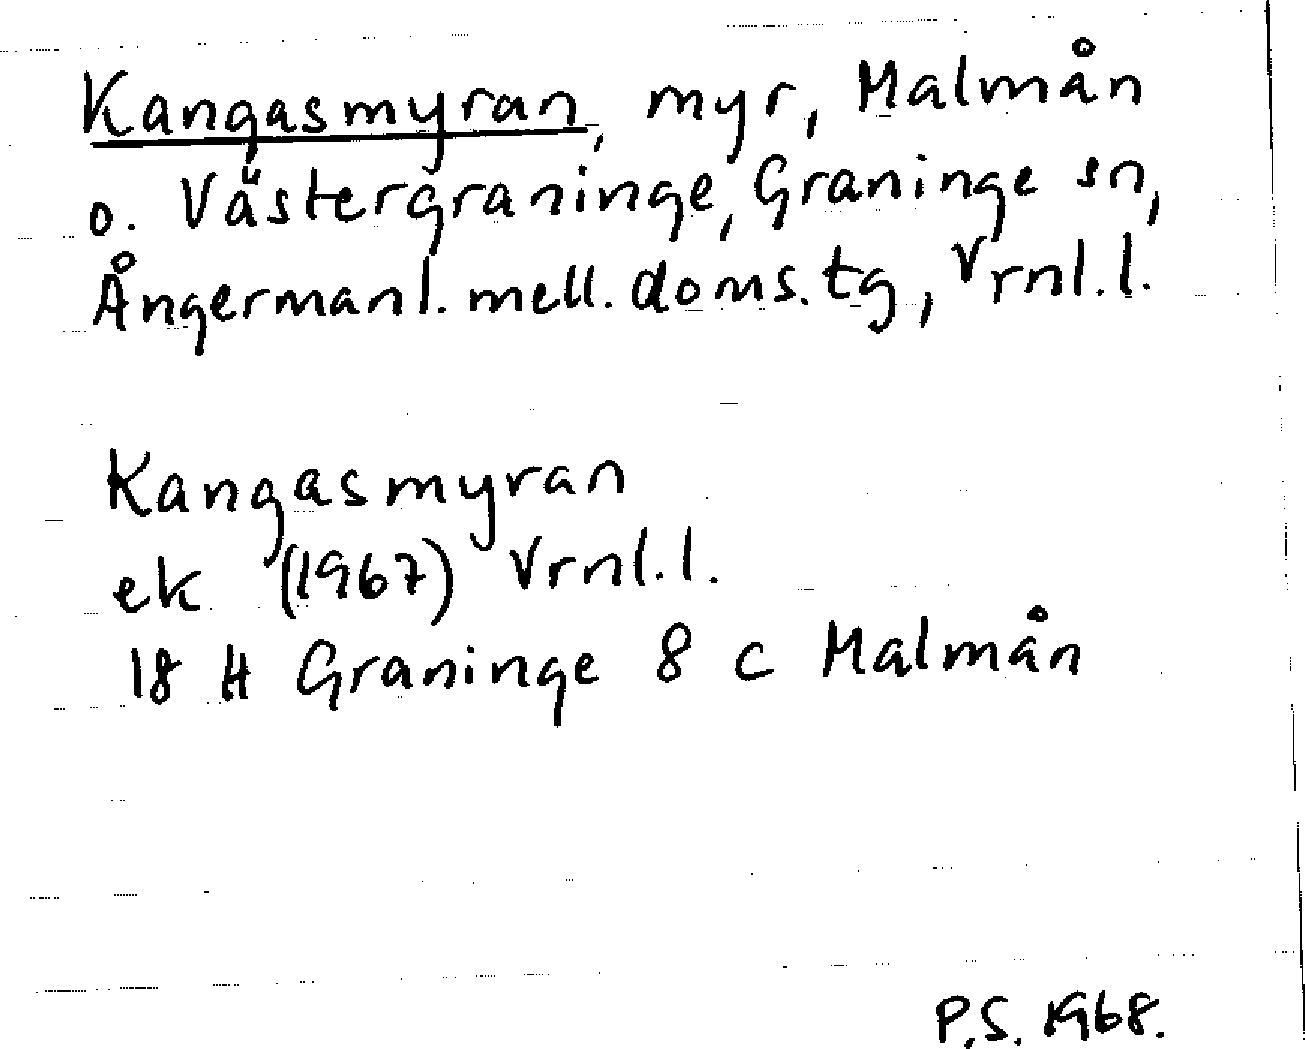 Kangasmyran, myr, Malmån
o. Västergraninge, Graninge sn,
Ångermanl. mell. doms. tg, Vrnl. l.
Kangasmyran
ek (1967) Vrnl. l.
18 H Graninge 8 c Malmån
P.S. 1968.